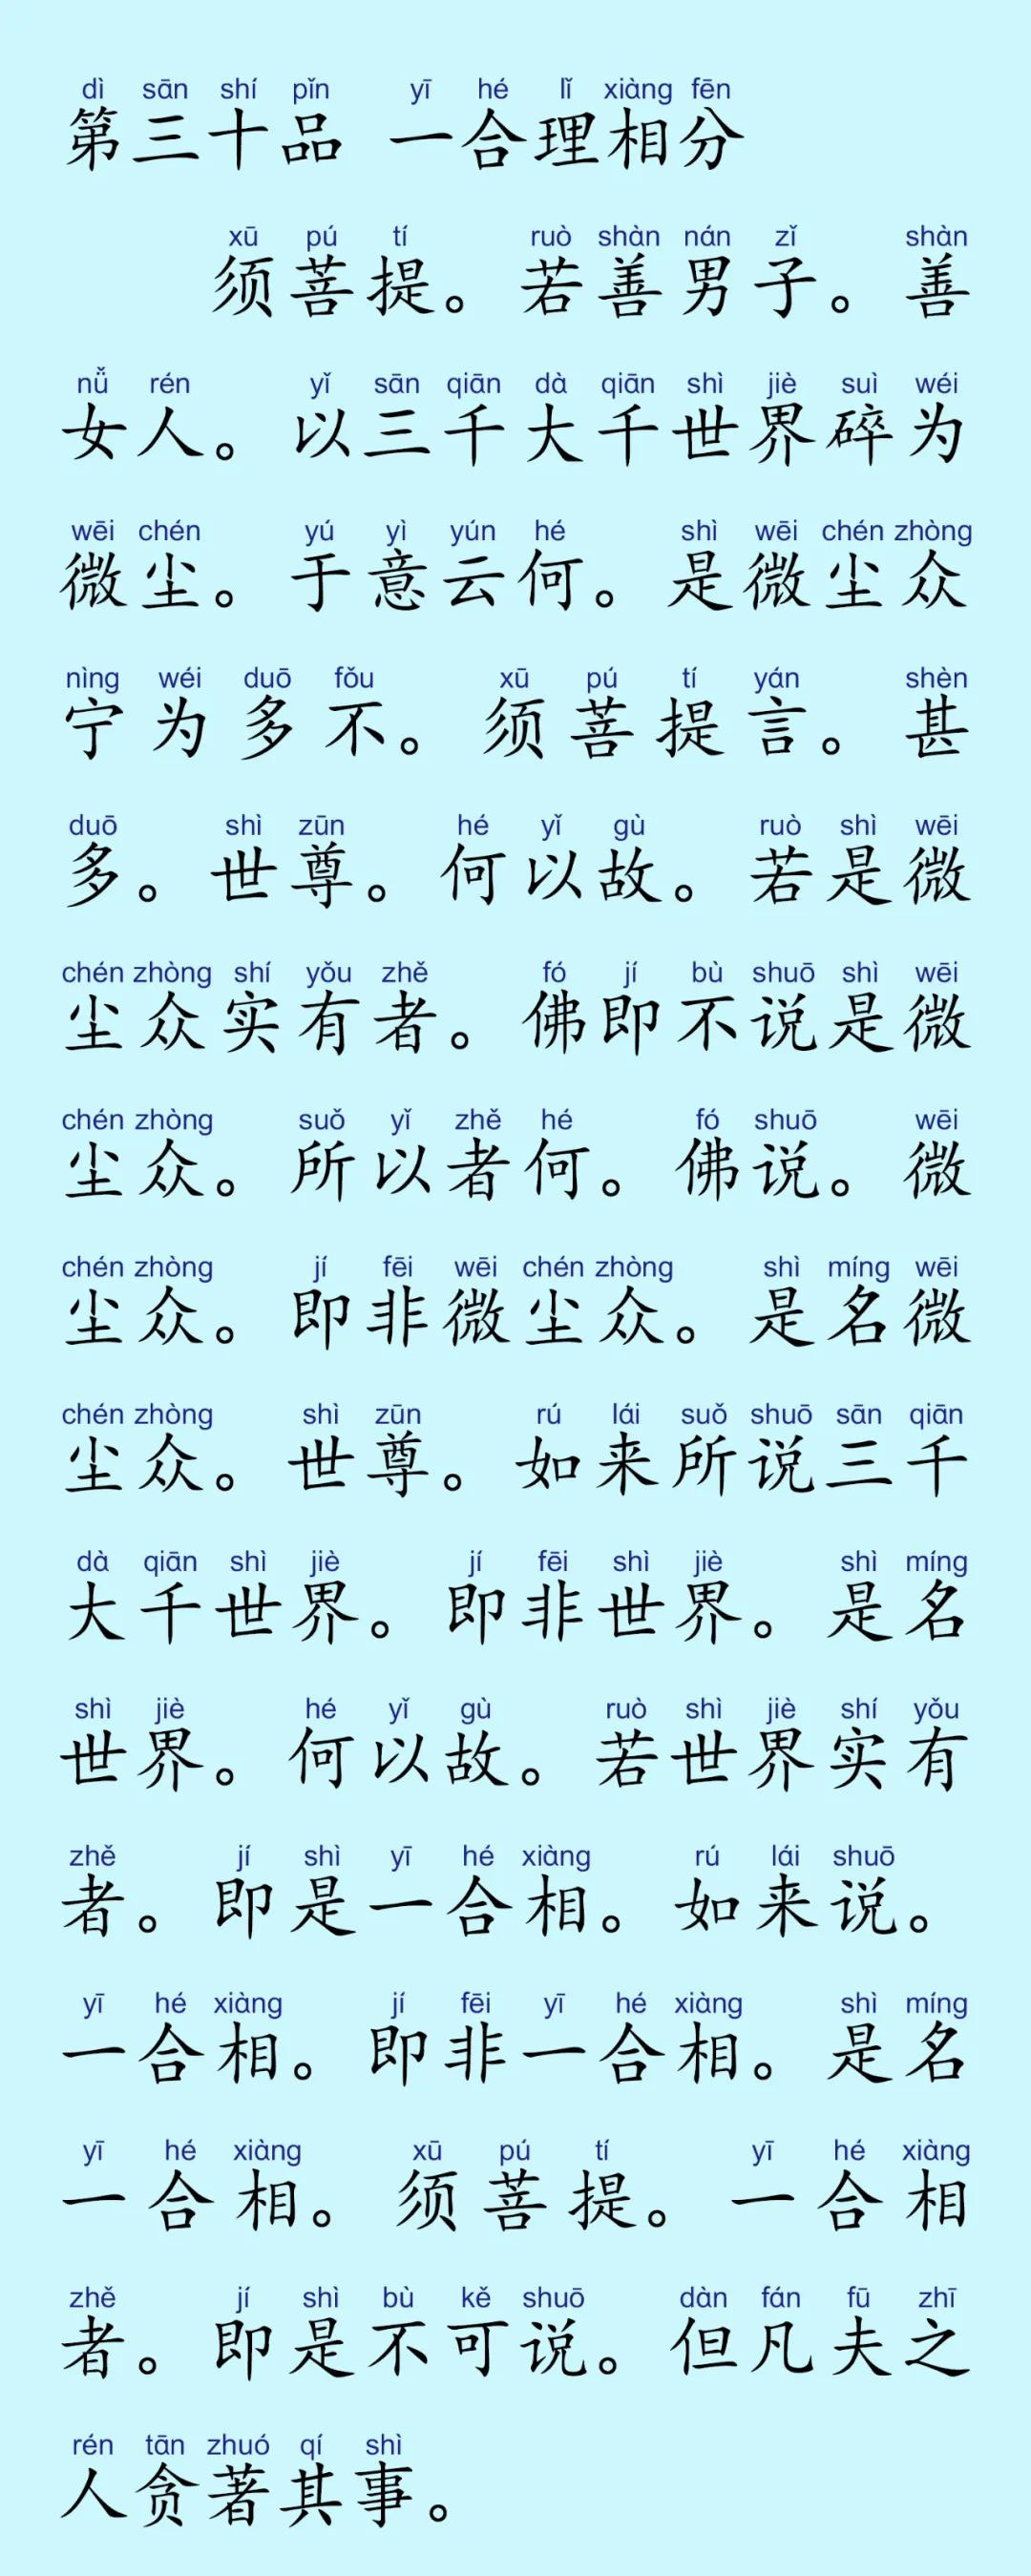 dì sān shí pǐn yī hé lǐ xiàng fēn
第三十品 一合理相分
xū pú tí ruò shàn nán zǐ shàn
须菩提。若善男子。善
nǚ rén yǐ sān qiān dà qiān shì jiè suì wéi
女人。以三千大千世界碎为
wēi chén yú yì yún hé shì wēi chén zhòng
微尘。于意云何。是微尘众
nìng wéi duō fǒu xū pú tí yán shèn
宁为多不。须菩提言。甚
duō shì zūn hé yǐ gù ruò shì wēi
多。世尊。何以故。若是微
chén zhòng shí yǒu zhě fó jí bù shuō shì wēi
尘众实有者。佛即不说是微
chén zhòng suǒ yǐ zhě hé fó shuō wēi
尘众。所以者何。佛说。微
chén zhòng jí fēi wēi chén zhòng shì míng wēi
尘众。即非微尘众。是名微
chén zhòng shì zūn rú lái suǒ shuō sān qiān
尘众。世尊。如来所说三千
dà qiān shì jiè jí fēi shì jiè shì míng
大千世界。即非世界。是名
shì jiè hé yǐ gù ruò shì jiè shí yǒu
世界。何以故。若世界实有
zhě jí shì yī hé xiàng rú lái shuō
者。即是一合相。如来说。
yī hé xiàng jí fēi yī hé xiàng shì míng
一合相。即非一合相。是名
yī hé xiàng xū pú tí yī hé xiàng
一合相。须菩提。一合相
zhě jí shì bù kě shuō dàn fán fū zhī
者。即是不可说。但凡夫之
rén tān zhuó qí shì
人贪著其事。